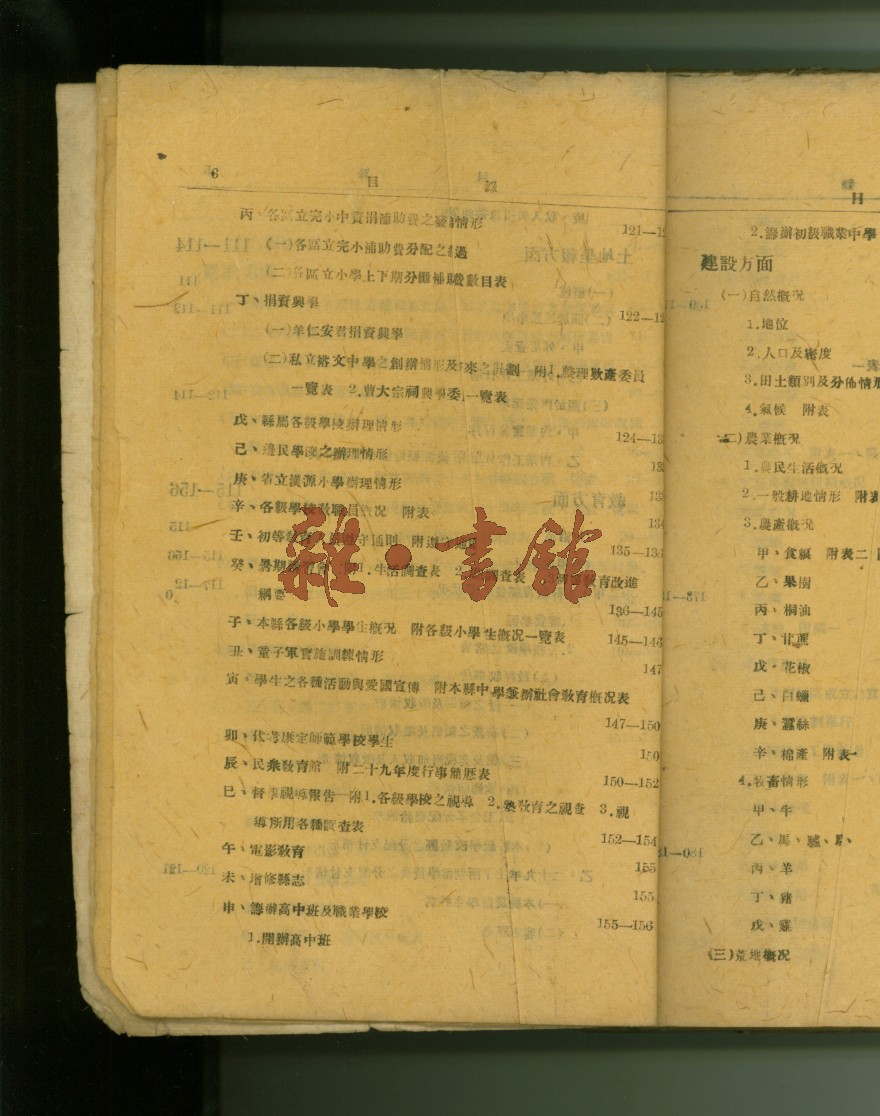 6
目　錄
丙、各區立完小中資捐補助費之　情形
121—12
(一)各區立完小補助費分配之　過
(二)各區立小學上下期分　補助　數目表
丁、捐資興學
122—12
(一)羊仁安君捐資興學
(二)私立裕文中學之創辦情形及　來之計劃　附1.整理　產委員
一覽表　2.曹大宗祠興學委　一覽表
戊、縣屬各級學校辦理情形
124—13
己、邊民學校之辦理情形
13
庚、省立漢源小學辦理情形
13
辛、各級學校教職員　況　附表
134
壬、初等教育人員　守通則　附
135—13
癸、暑期　1.生活調查表　2.　調查表　3.　教育改進
綱要
136—145
子、本縣各級小學學生概況　附各級小學　生概況一覽表
145—146
丑、童子軍實施訓練情形
147
寅、學生之各種活動與愛國宣傳　附本縣中學兼辦社會教育概況表
147—150
卯、代考康定師範學校學生
150
辰、民衆教育館　附二十九年度行事簡歷表
150—152
巳、督學視導報告—附1.各級學校之視導　2.　教育之視查　3.視
導所用各種調查表
152—154
午、電影教育
155
未、增修縣志
155
申、籌辦高中班及職業學校
155—156
1.開辦高中班
目
2.籌辦初級職業中學
建設方面
(一)自然概況
1.地位
2.人口及密度
3.田土類別及分佈情形
4.氣候　附表
(二)農業概況
1.農民生活概況
2.一般耕地情形　附表
3.農產概況
甲、食糧　附表二
乙、果樹
丙、桐油
丁、甘蔗
戊、花椒
己、白蠟
庚、蠶絲
辛、棉產　附表一
4.牧畜情形
甲、牛
乙、馬、驢、騾、
丙、羊
丁、豬
戊、雞
(三)荒地概況
雜·書館